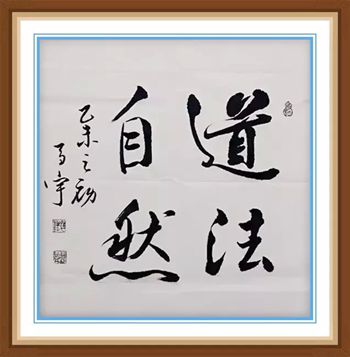 道法
自然
乙未之初